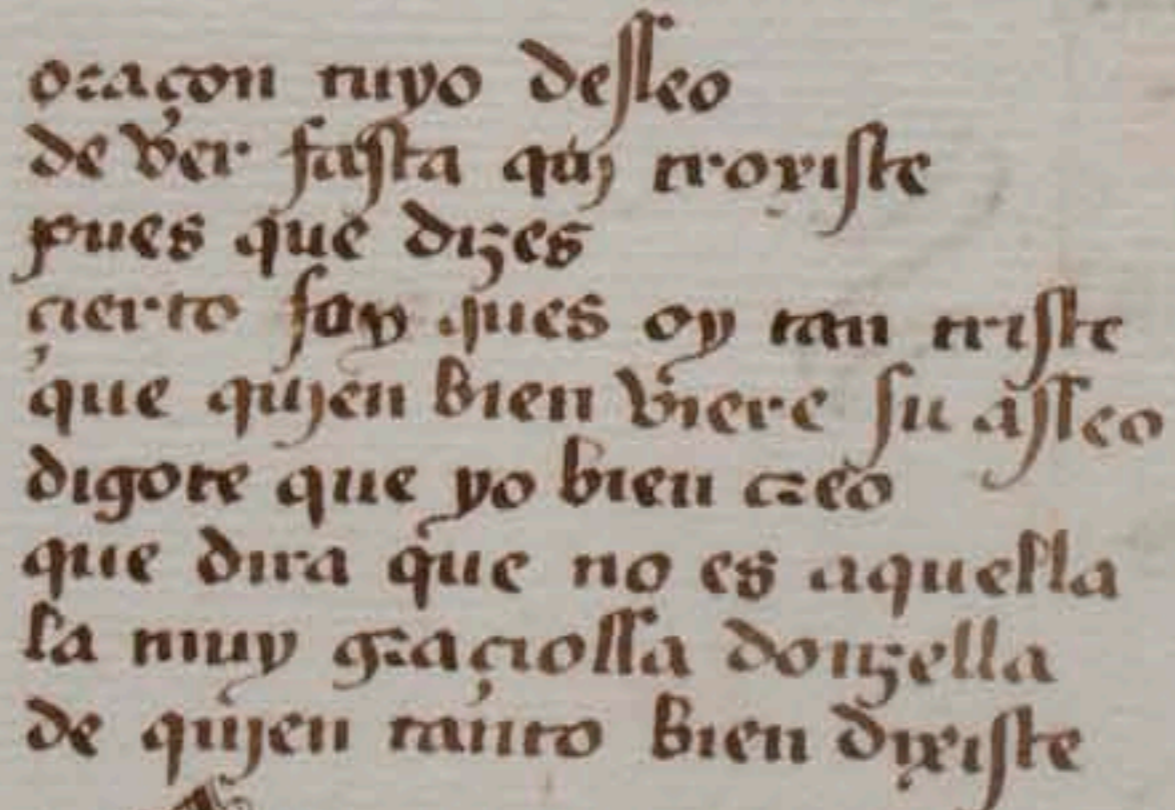 oraçon tuyo desseo
de ver fasta quj troxiste
pues que dizes
çierto soy ques oy tan triste
que qujen bien viere su asseo
digote que yo bien creo
que dira que no es aquella
la muy graçiossa donzella
de qujen tanto bien dixiste